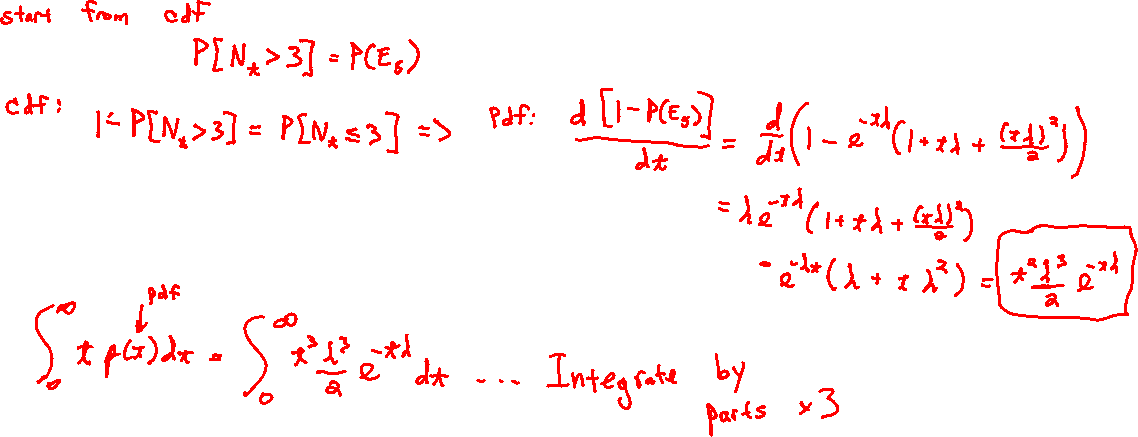 start from cdf
P[N_t > 3] = P(E_5)
cdf: 1 - P[N_t > 3] = P[N_t ≤ 3] => Pdf: d[1 - P(E_5)]/dt = d/dt(1 - e^{-tλ}(1 + tλ + (tλ)^2/2))
= λe^{-tλ}(1 + tλ + (tλ)^2/2)
- e^{-λt}(λ + tλ^2) = t^2λ^3/2 e^{-tλ}
pdf
∫_0^∞ t p(t)dt = ∫_0^∞ t^3λ^3/2 e^{-tλ} dt ... Integrate by
parts x3